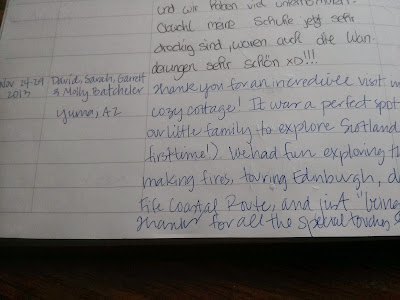 und wir haben viel unternommen.
Obwohl meine Schuhe jetzt sehr
dreckig sind, waren auch die Wan-
derungen sehr schön xD!!!
Nov 24-29 2013
David, Sarah, Garrett
& Molly Batcheler
Yuma, AZ
Thank you for an incredible visit in
cozy cottage! It was a perfect spot
our little family to explore Scotland
first time!). We had fun exploring th
making fires, touring Edinburgh, d
Fife Coastal Route, and just "being
Thanks for all the special touches